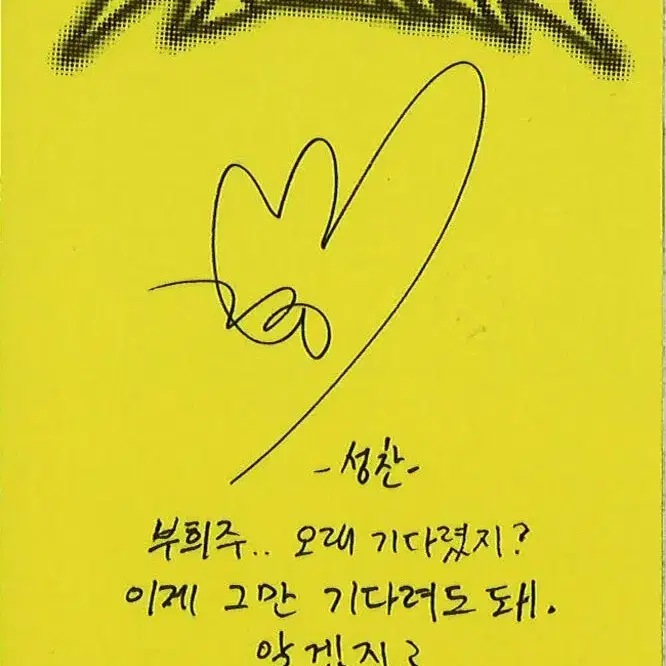 -성찬-
부희주.. 오래 기다렸지?
이제 그만 기다려도 돼.
알겠지?